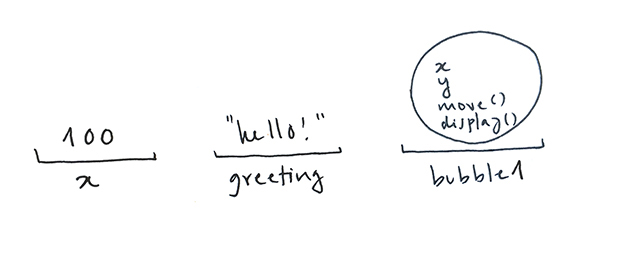 100
x
"hello!"
greeting
x
y
move()
display()
bubble1